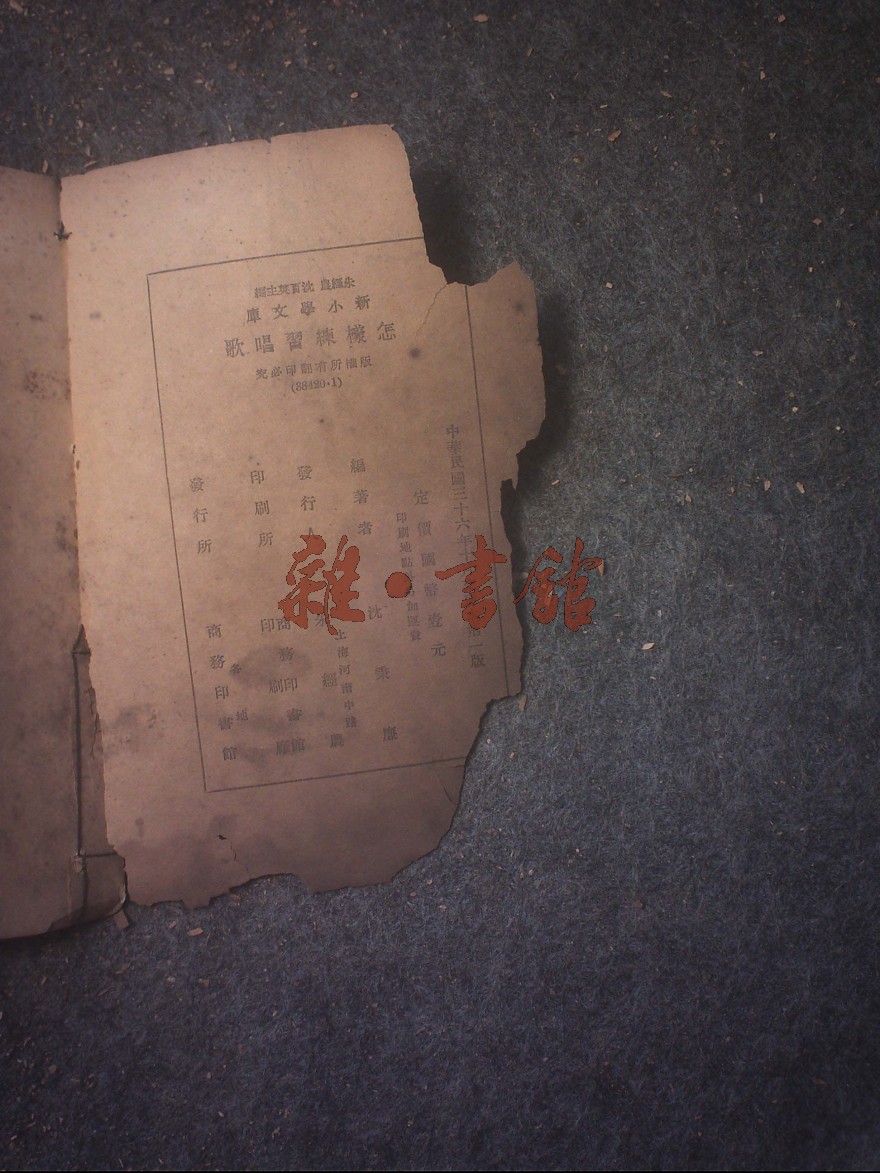 朱經農 沈百英主編
新小學文庫
怎樣練習唱歌
版權所有翻印必究
(88420·1)
中華民國三十六年十 一版
定價國幣壹元
印刷地點 加匯費
編著者 沈秉廉
發行人 朱經農
上海河南中路
印刷所 商務印書館
印刷廠
發行所 各地
商務印書館
雜·書館